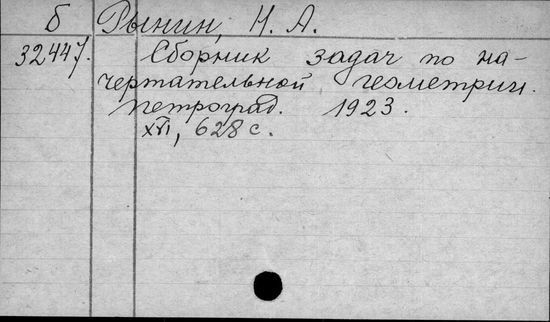 б Рынин, Н. А.
32447. Сборник задач по на-
чертательной геометрии.
Петроград. 1923.
XVI, 628 с.